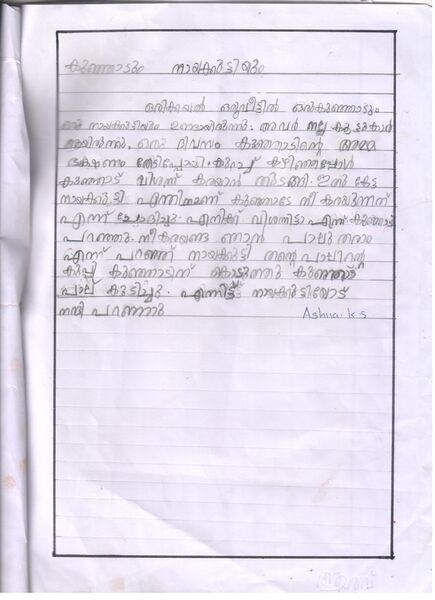 കുഞ്ഞാടും നായക്കുട്ടിയും
ഒരിക്കൽ ഒരുവീട്ടിൽ ഒരുകുഞ്ഞാടും
ഒരു നായക്കുട്ടിയും ഉണ്ടായിരുന്നു. അവർ നല്ല കൂട്ടുകാർ
ആയിരുന്നു. ഒരു ദിവസം കുഞ്ഞാടിന്റെ അമ്മ
ഭക്ഷണം തേടിപ്പോയി. കുറച്ച് കഴിഞ്ഞപ്പോൾ
കുഞ്ഞാട് വിശന്ന് കരയാൻ തുടങ്ങി. ഇതു കേട്ട
നായക്കുട്ടി എന്തിനാണ് കുഞ്ഞാടേ നീ കരയുന്നത്
എന്ന് ചോദിച്ചു. എനിക്ക് വിശന്നിട്ടാ എന്ന് കുഞ്ഞാട്
പറഞ്ഞു. നീ കരയണ്ട ഞാൻ പാലു തരാം
എന്ന് പറഞ്ഞ് നായക്കുട്ടി തന്റെ പാലിന്റെ
കുപ്പി കുഞ്ഞാടിന് കൊടുത്തു കുഞ്ഞാട്
പാല് കുടിച്ചു. എന്നിട്ട് നായക്കുട്ടിയോട്
നന്ദി പറഞ്ഞു Ashua.k.s